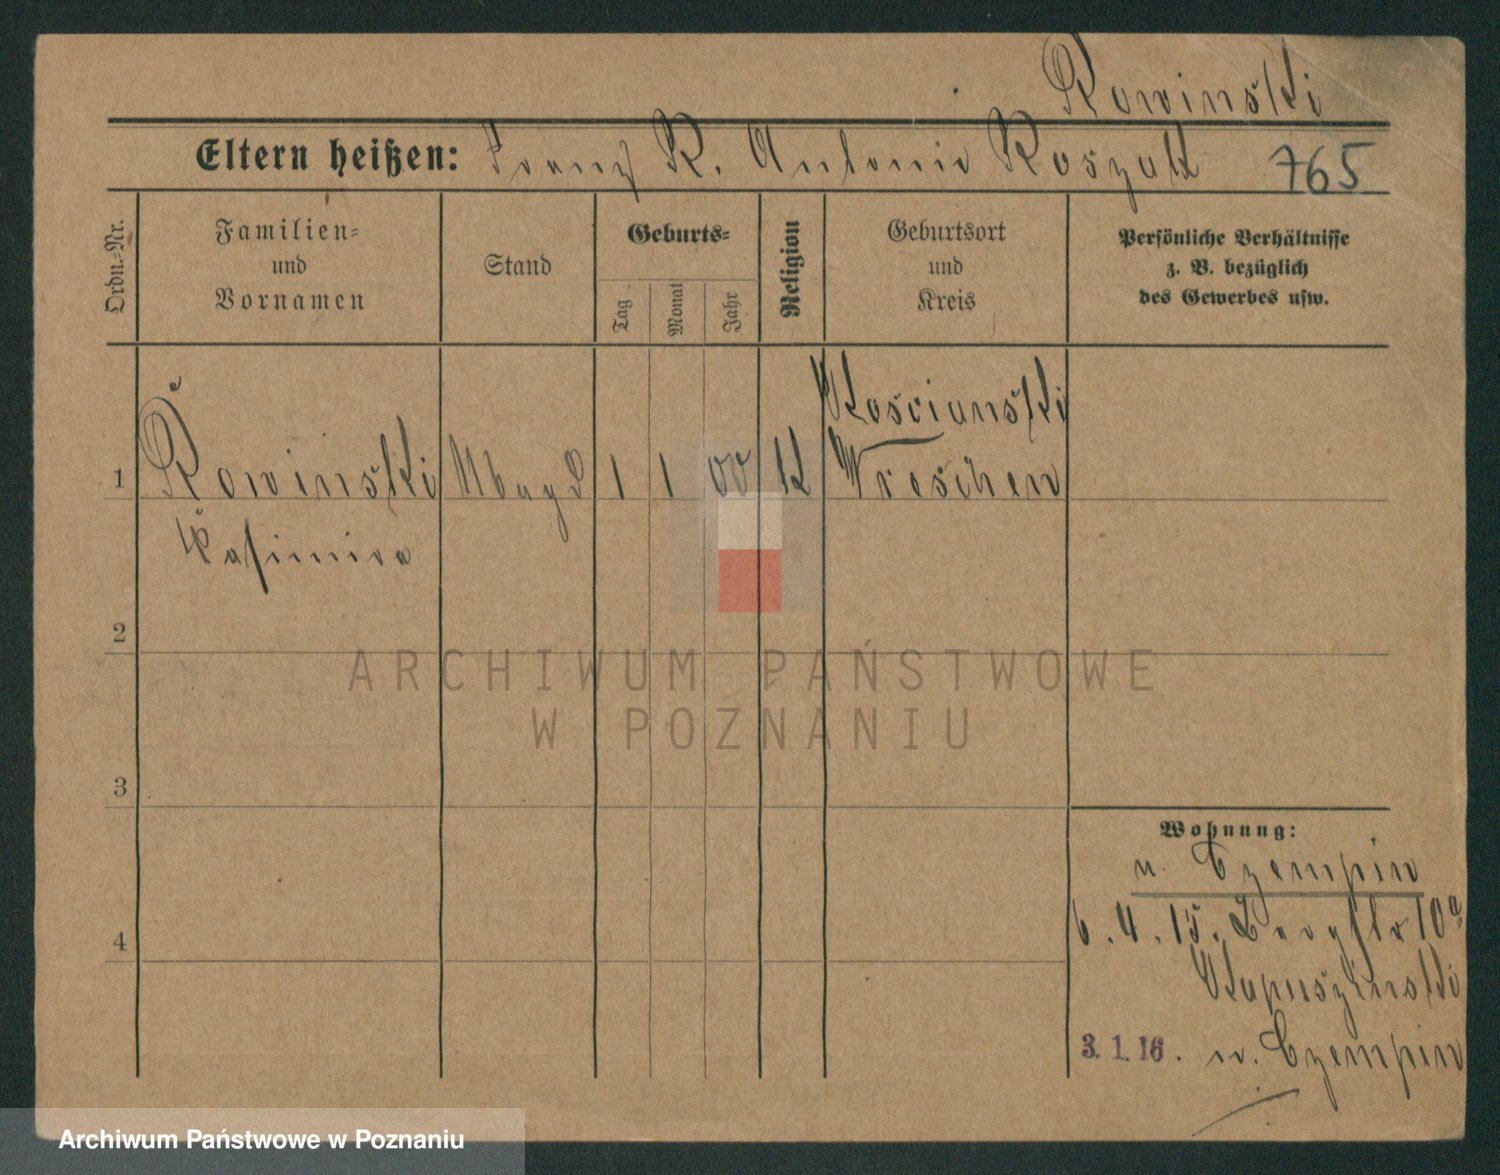 Rowinski
Eltern heißen: Franz R. Antonie Roszak 765
Ordn.-Nr.
Familien-
und
Vornamen
Stand
Geburts-
Tag
Monat
Jahr
Religion
Geburtsort
und
Kreis
Persönliche Verhältnisse
z. B. bezüglich
des Gewerbes usw.
Koscianski
1 Rowinski Magd 1 1 00 K Wreschen
Kasimira
2
ARCHIWUM PAŃSTWOWE
W POZNANIU
3
Wohnung:
n. Czempin
4
6.4.15. Bergstr 10a
Kapuszinski
3.1.16. n. Czempin
Archiwum Państwowe w Poznaniu